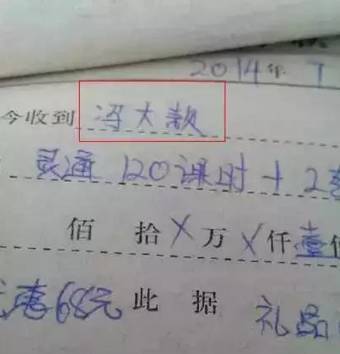 2014年
今收到 冯大款
灵通 120课时+2
佰 拾X万X仟壹
惠68元 此 据 礼品